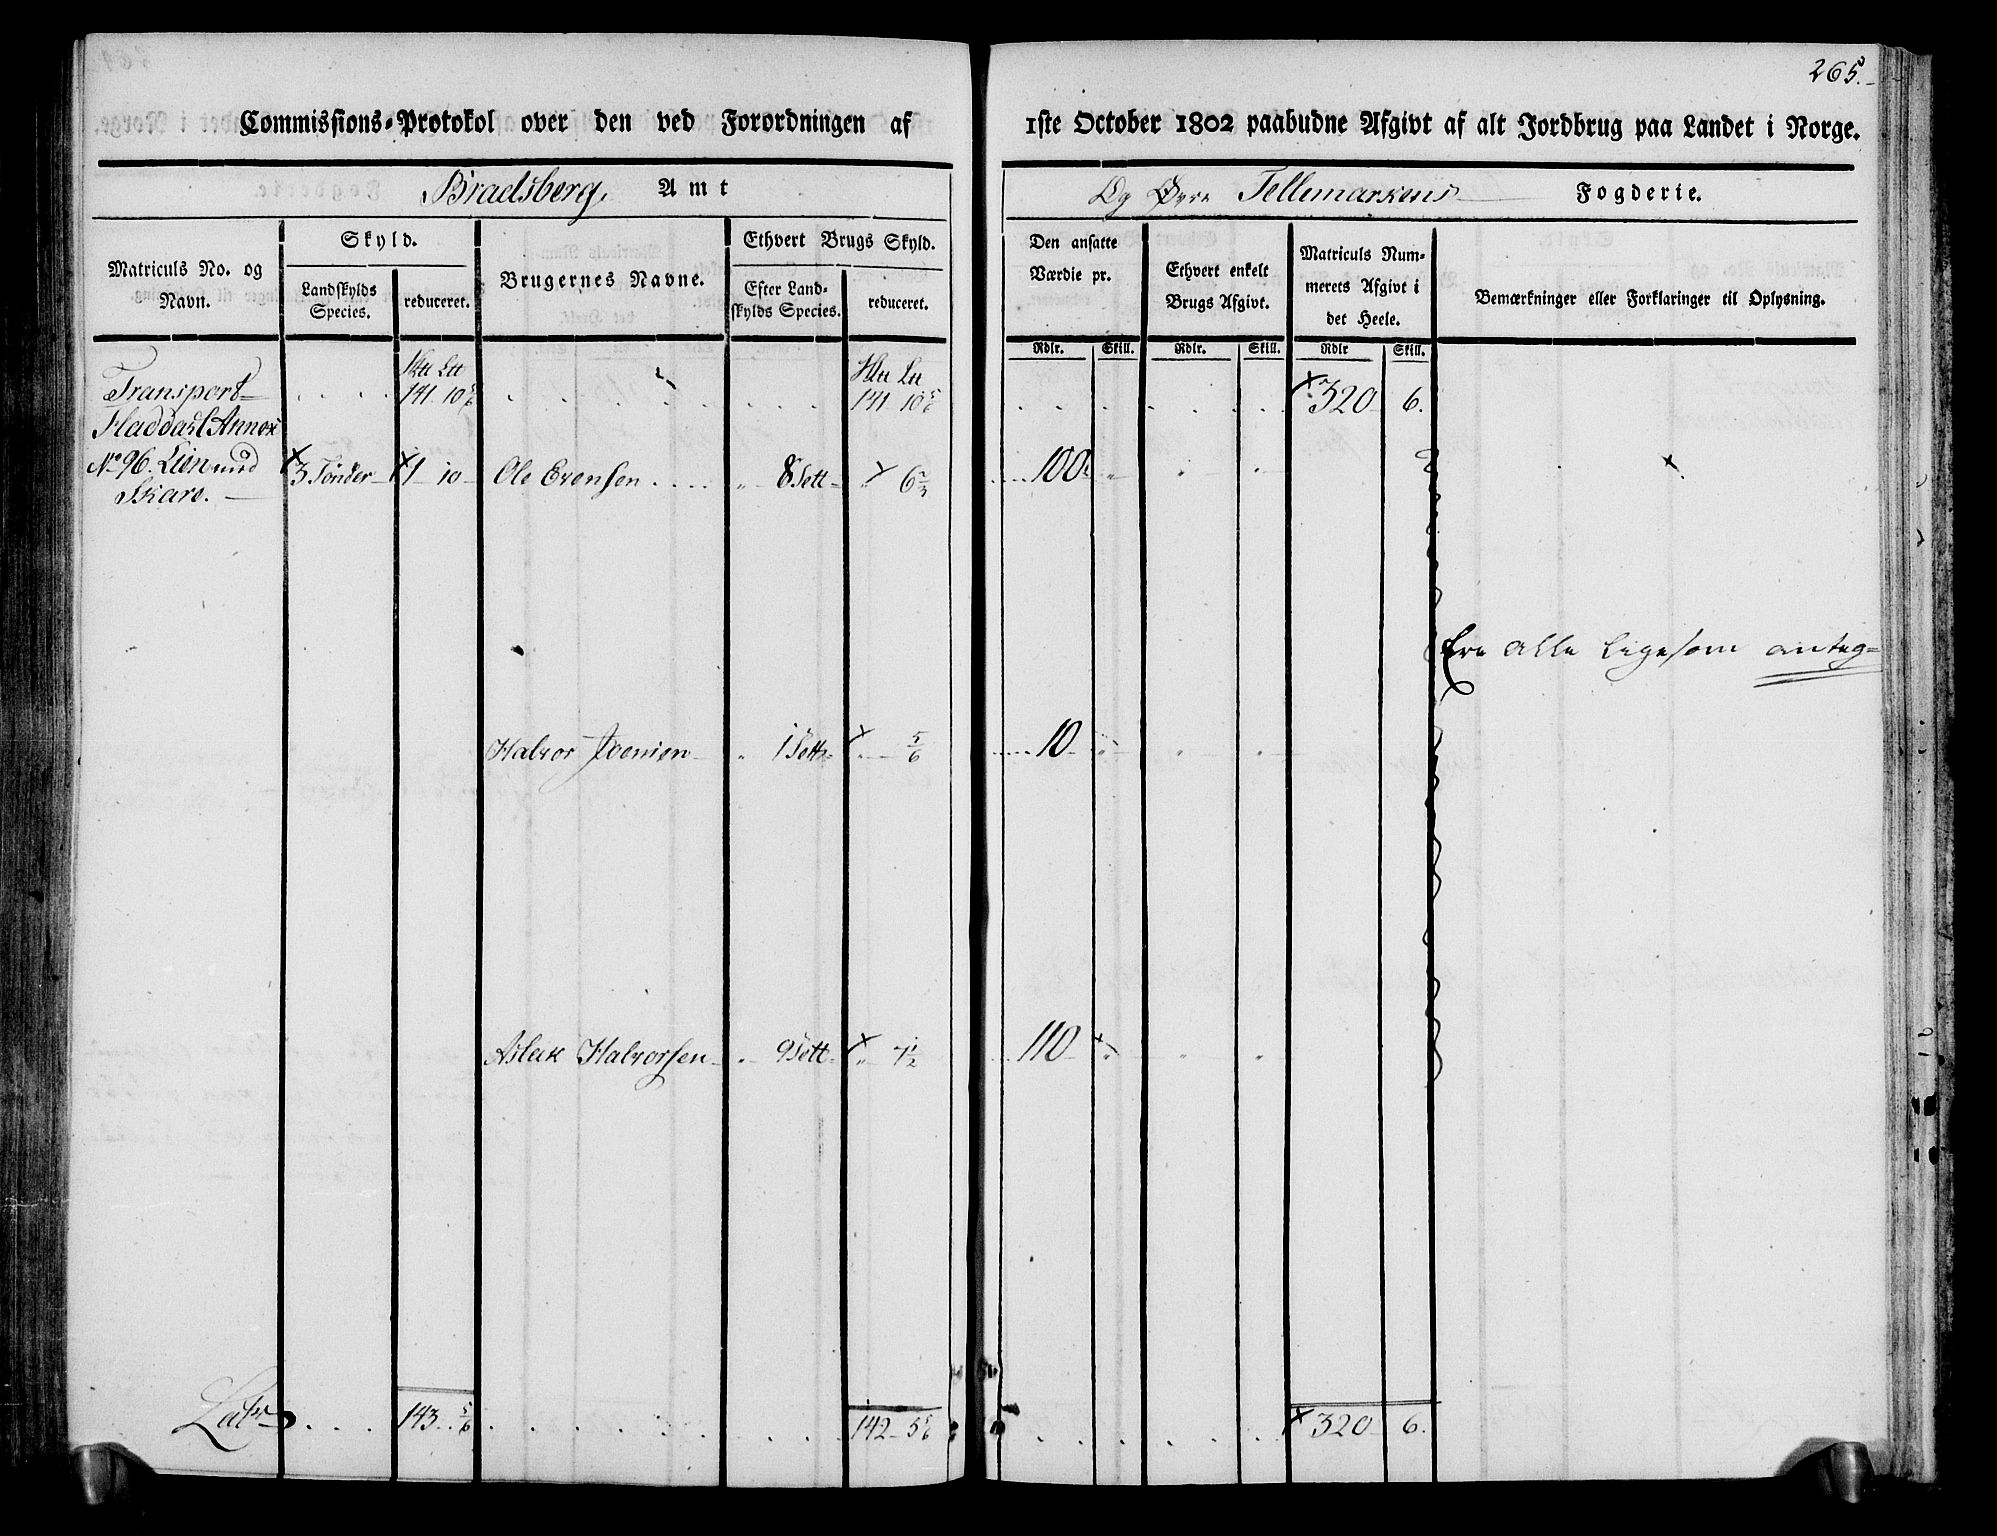 265.
Commissions-Protokol over den ved Forordningen af 1ste October 1802 paabudne Afgivt af alt Jordbrug paa Landet i Norge.
Bradsberg Amt Og Øvre Tellemarkens Fogderie.
Matriculs No. og Navn.
Skyld.
Landskylds Species.
reduceret.
Brugernes Navne.
Ethvert Brugs Skyld.
Efter Landskylds Species.
reduceret.
Den ansatte Værdie pr.
Ethvert enkelt Brugs Afgivt.
Matriculs Nummerets Afgivt i det Heele.
Bemærkninger eller Forklaringer til Oplysning.
Rdlr. Skill. Rdlr. Skill. Rdlr Skill.
Transport 141 10 5/6 141 10 5/6 320 6.
Fladdahl Annex
No 96. Lien und Skare. 3 Tønder 1 10 Ole Evensen 8 Sett 6 2/3 100
Ere alle ligesom anteg=
Halvor Joensen 1 Sett 5/6 10
Aslak Halvorsen 9 Sett 7 1/2 110
Latr 143 5/6 142 5 5/6 320 6.